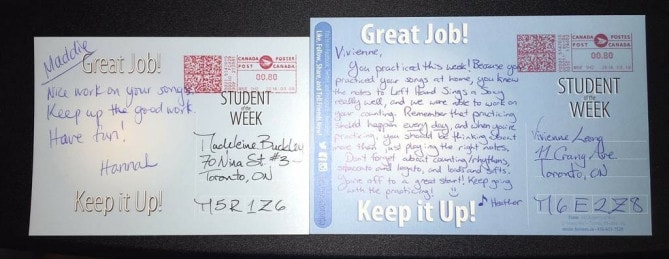 Maddie
Great Job!
CANADA POSTES
POST CANADA
00.80
Nice work on your songs.
Keep up the good work.
Have fun!
Hannah
STUDENT
of the
WEEK
Madeleine Buckley
70 Nina St #3
Toronto, ON
M5R 1Z6
Keep it Up!
Great Job!
CANADA POSTES
POST CANADA
00.80
Vivienne,
You practiced this week! Because you
practiced your songs at home, you knew
the notes to Left Hand Sings a Song
really well, and we were able to work on
your counting. Remember that practicing
should happen every day, and when you're
practicing, you should be thinking about
more than just playing the right notes.
Don't forget about counting/rhythms,
staccato and legato, and louds and softs.
You're off to a great start! Keep going
with the practicing!
Heather
STUDENT
of the
WEEK
Vivienne Leong
Ave
Toronto, ON
M6E 2Z8
Keep it Up!